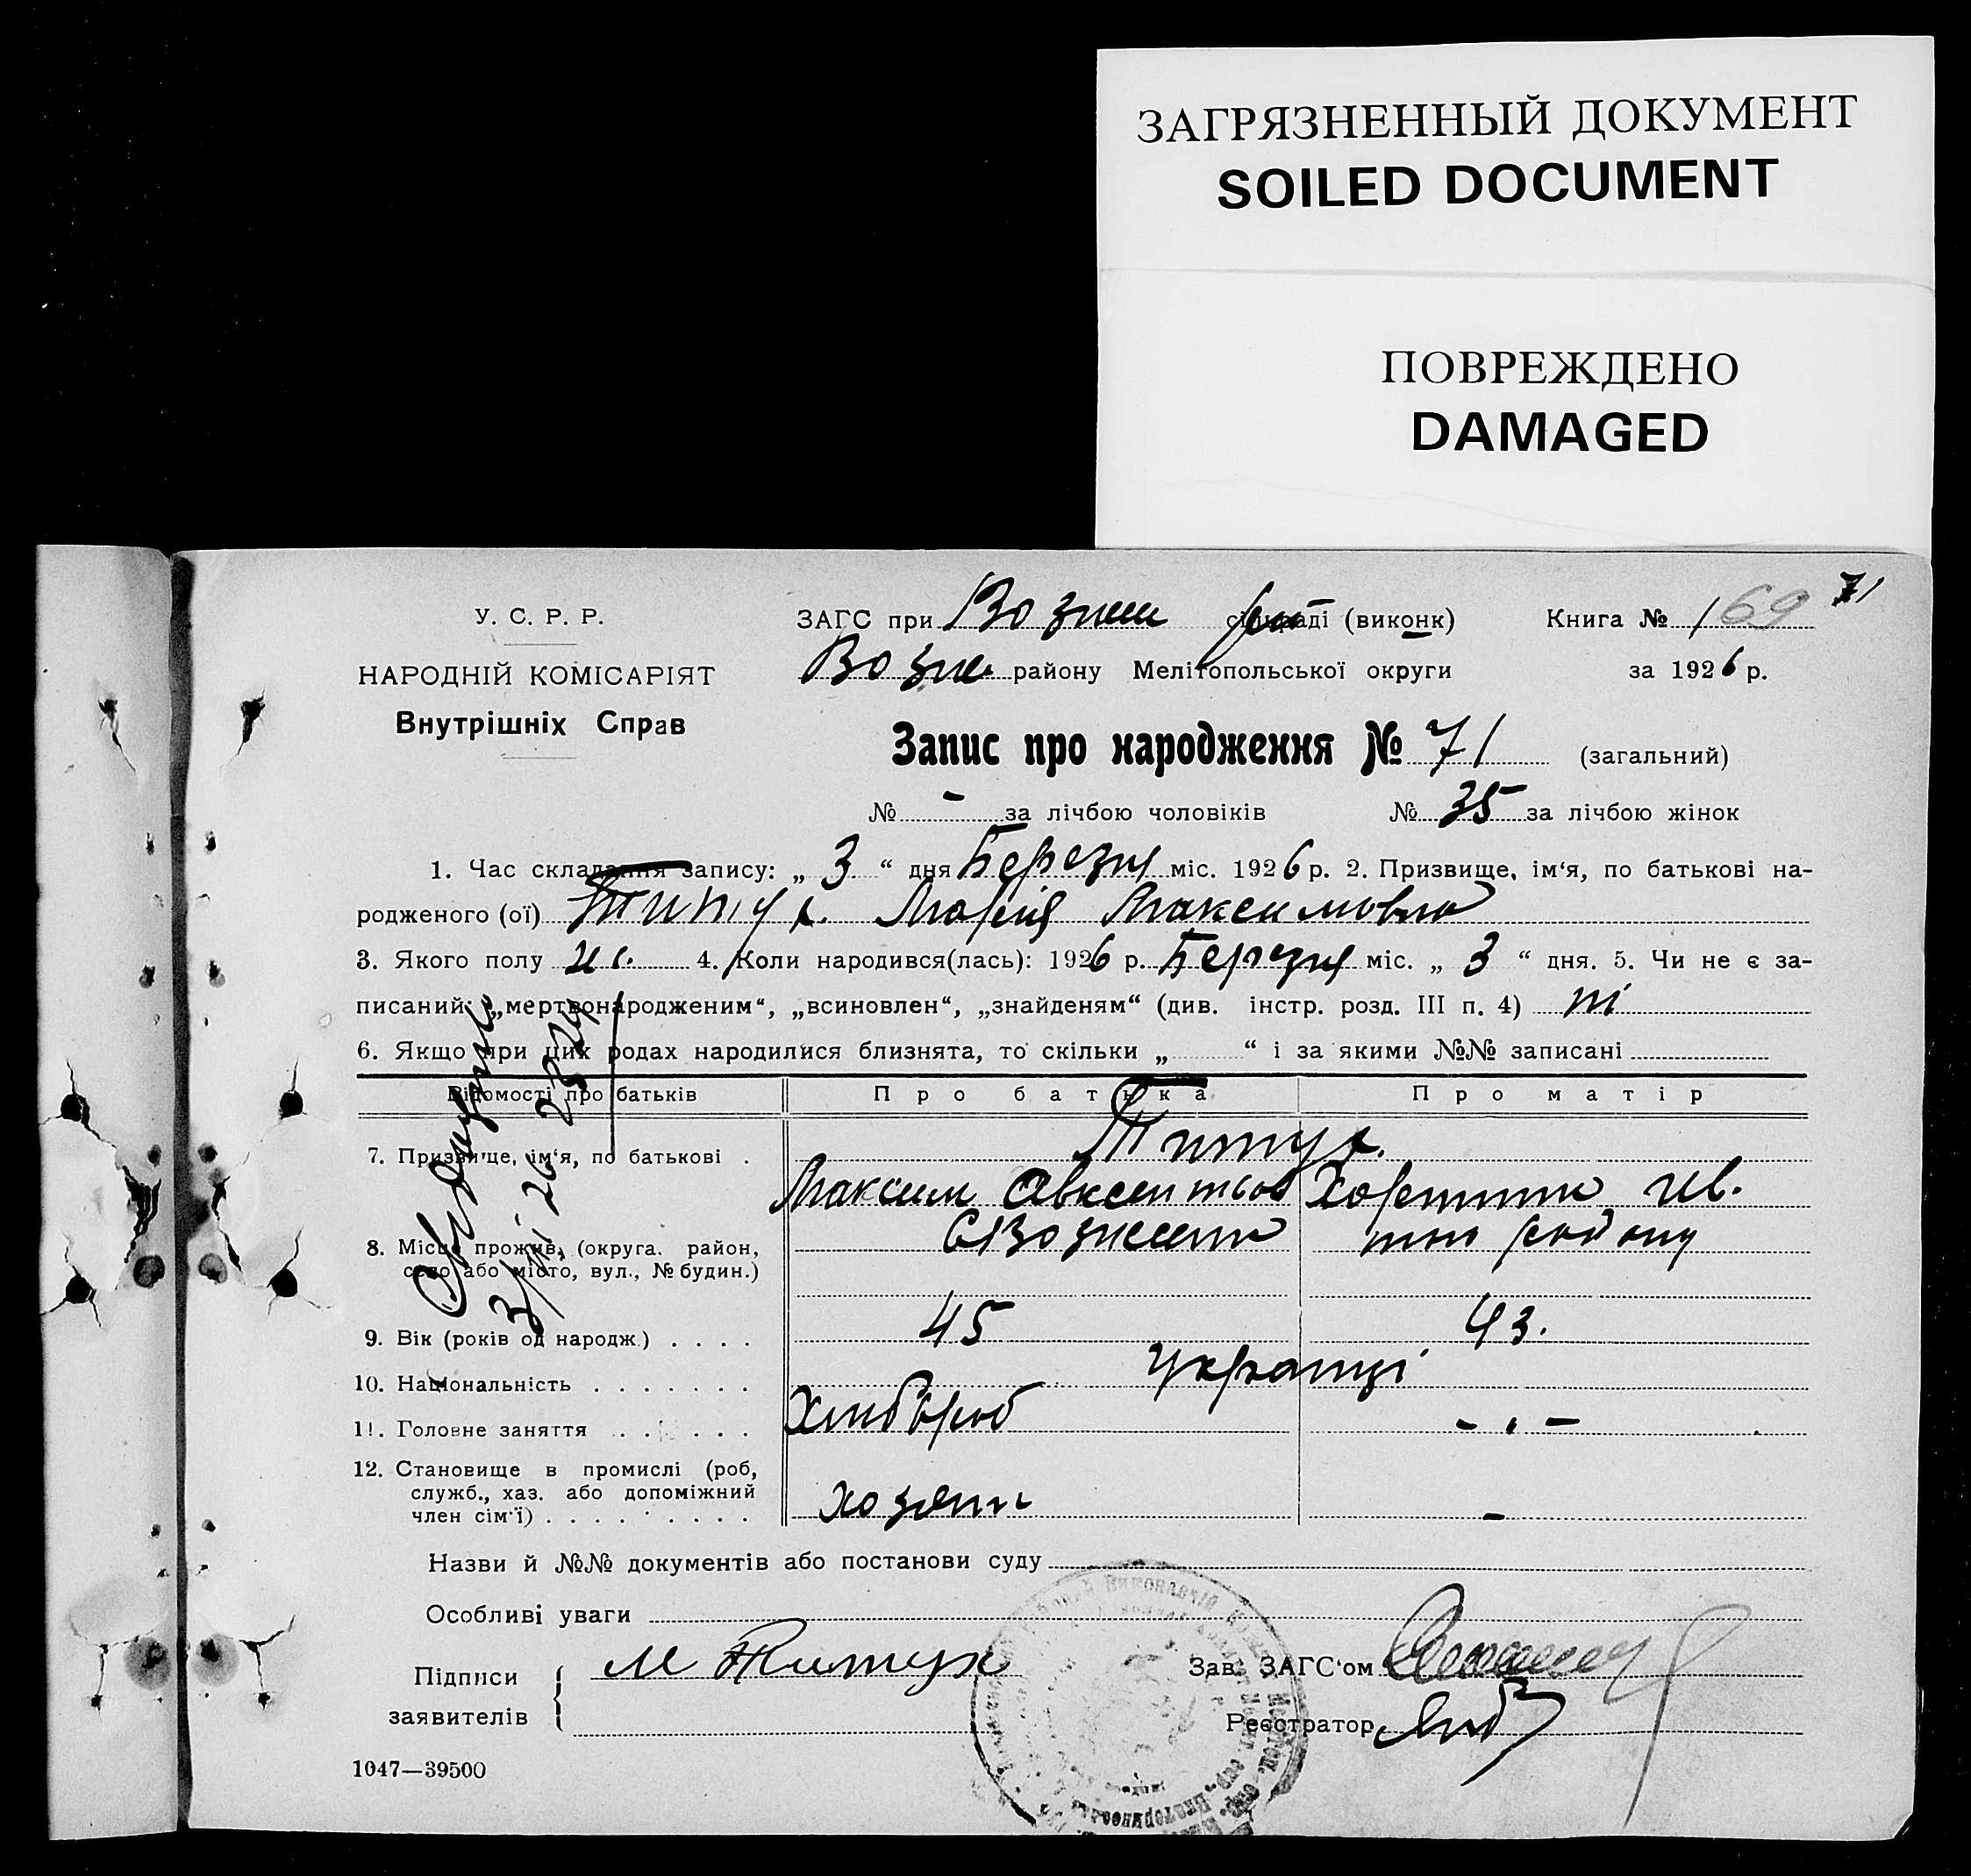 ЗАГРЯЗНЕННЫЙ ДОКУМЕНТ
SOILED DOCUMENT
ПОВРЕЖДЕНО
DAMAGED
71
У. С. Р. Р.
НАРОДНІЙ КОМІСАРІЯТ
Внутрішніх Справ
ЗАГС при Вознен сільраді (виконк) Книга № 1 69
Возне району Мелітопольської округи за 1926 р.
Запис про народження № 71 (загальний)
№ - за лічбою чоловіків № 35 за лічбою жінок
1. Час складання запису: „ 3 “ дня Березня міс. 1926 р. 2. Призвище, ім‘я, по батькові на-
родженого (ої) Титух Марія Максимовна
3. Якого полу ж. 4. Коли народився(лась): 1926 р. Березня міс. „ 3 “ дня. 5. Чи не є за-
писаний: „мертвонародженим“, „всиновлен“, „знайденям“ (див. інстр. розд. III п. 4) ні
6. Якщо при цих родах народилися близнята, то скільки „ “ і за якими №№ записані
Відомості про батьків Про батька Про матір
7. Призвище, ім‘я, по батькові . Титух.
Максим Авксентьев Хоретина Ив.
8. Місце прожив. (округа. район, с Вознесен район
село або місто, вул., № будин.)
9. Вік (років од народж.) . . . . 45 43.
10. Національність . . . . . . . Українці
11. Головне заняття . . . . . . Хлибороб - „ -
12. Становище в промислі (роб,
служб., хаз. або допоміжний
член сім‘ї) . . . . . . . . . хозяин -
Назви й №№ документів або постанови суду
Особливі уваги
Підписи М Титух Зав. ЗАГС‘ом
заявителів Реєстратор
1047—39500